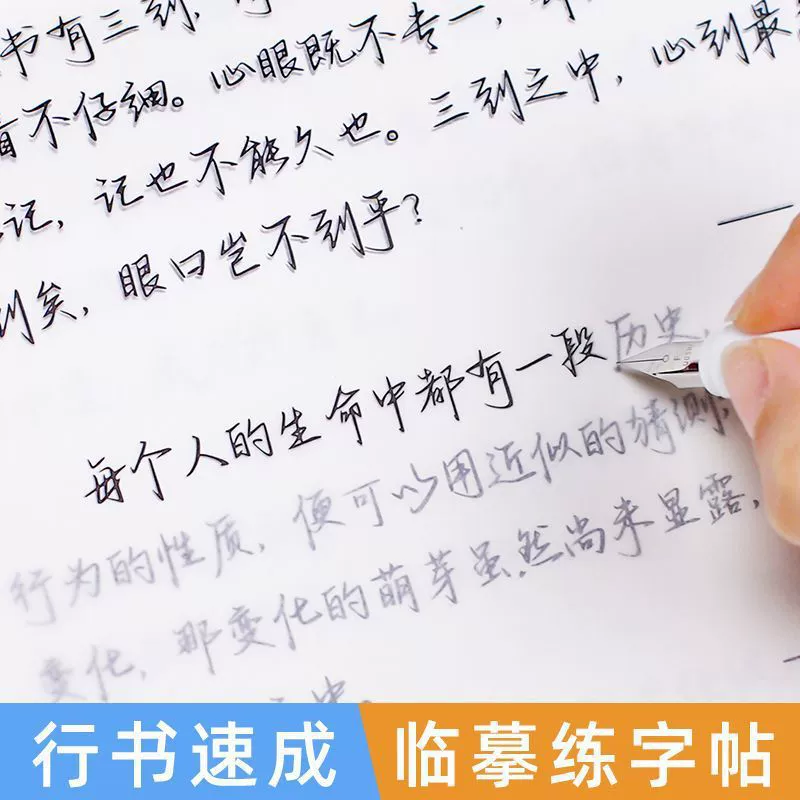 书有三到，
看不仔细。心眼既不专一，
记，记也不能久也。三到之中，心到最
到矣，眼口岂不到乎？
每个人的生命中都有一段历史，
行为的性质，便可以用近似的猜测，
变化，那变化的萌芽虽然尚未显露，
中。
行书速成
临摹练字帖